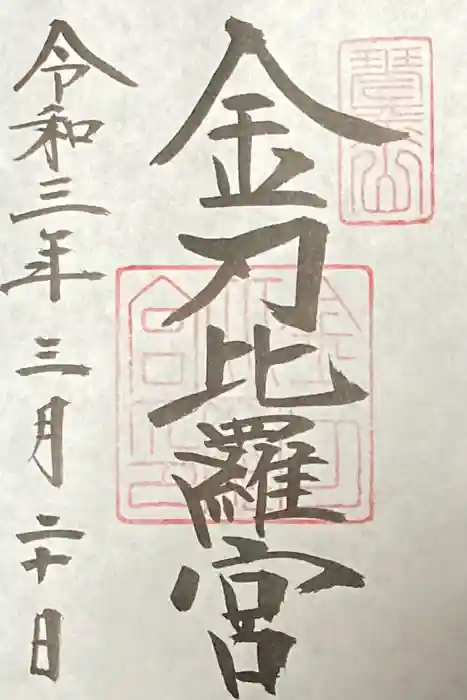 金刀比羅宮
令和三年三月二十日